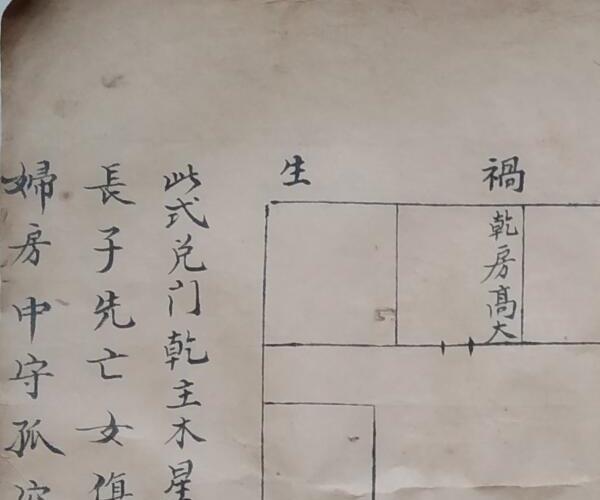 禍
乾房高大
生
此式兑门乾主木星
長子先亡女俱
婦房中守孤